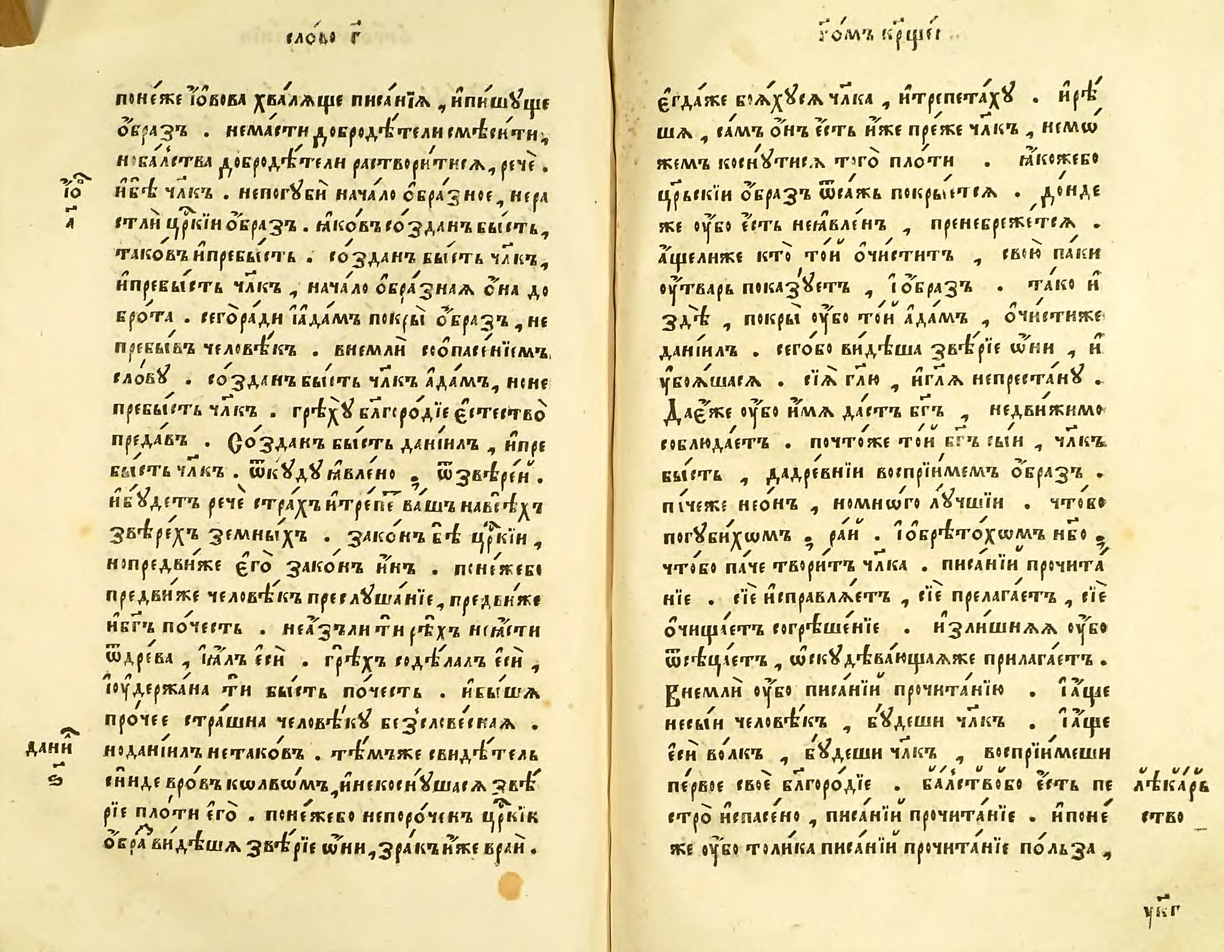 сло́во г҃
понеже їо́вова хвалѧще писанїѧ, и҆пишꙋще
ѻ҆́бразъ . немасти добродѣ́тели смѣси́ти,
нобалства добродѣ́тели растворитисѧ, рече .
їѡ҃
а҃
и҆бѣ̀ чл҃къ . непогꙋбѝ начало ѻ҆бразное, нера
стлѝ цр҃кїи ѻ҆́бразъ . ꙗ҆ковъ со́зданъ бы́сть,
таковъ и҆пребы́сть . со́зданъ бы́сть чл҃къ,
и҆пребы́сть чл҃къ, начало ѻ҆бра́знаѧ ѻ҆на до
брота . сегѡ́ради і҆ада́мъ покры̀ ѻ҆́бразъ, не
пребывъ человѣ́къ . внемлѝ соѻпасе́нїемъ
сло́вꙋ . со́зданъ бы́сть чл҃къ а҆да́мъ, ноне
пребы́сть чл҃къ . грѣхꙋ̀ бл҃горо́дїе є҆стество̀
преда́въ . Со́зданъ бы́сть данїи́лъ, и҆пре
бы́сть чл҃къ . ѿкꙋ́дꙋ ꙗ҆вле́но ; ѿзвѣре́й .
и҆бꙋ́детъ рече̏ стра́хъ и҆тре́пе ва́шъ навсѣ́хъ
звѣре́хъ земны́хъ . зако́нъ бѣ̀ цр҃кїи,
нопредви́же є҆го̀ зако́нъ и҆́нъ . поне́жебо
предви́же человѣ́къ преслꙋша́нїе, предви́же
и҆бг҃ъ по́честь . неа҆́зъли ти рѣ́хъ неꙗ҆сти
ѿдре́ва, і҆ꙗ҆́лъ є҆сѝ . грѣ́хъ содѣ́лалъ є҆сѝ,
і҆ꙋдержана ти бы́сть по́честь . и҆бы́шѧ
про́чее стра́шна человѣ́кꙋ безслове́снаѧ .
дани
ѕ҃
но данїи́лъ не тако́въ . тѣ́мъже свидѣ́тель
сни́де вро́въ ко льво́мъ, и҆некоснꙋ́шасѧ звѣ́
рїе пло́ти є҆го̀ . поне́жебо непоро́ченъ цр҃кїи
ѻ҆́бра ви́дѣшѧ звѣ́рїе ѻ҆ни, зра́къ и҆́же вра́й .
то́мъ кр҃ще́
є҆гда́же боѧ́хꙋсѧ чл҃ка, и҆трепета́хꙋ . и҆рѣ́
шѧ, са́мъ ѻ҆́нъ є҆́сть и҆́же пре́же чл҃къ, немѡ́
жемъ коснꙋ́тисѧ того̀ пло́ти . ꙗ҆́кожебо
цр҃ьскїи ѻ҆́бразъ ѿса́жь покры́етсѧ . до́нде
же ᲂу҆́бо є҆́сть неꙗ҆вле́нъ, пренебреже́тсѧ .
а҆́щелиже кто̀ то́й ѻ҆чи́ститъ, свою̀ па́ки
ᲂу҆́тварь показꙋ́етъ, і҆ѻ҆́бразъ . та́ко и҆
здѣ̀, покры̀ ᲂу҆́бо то́й а҆да́мъ, ѻ҆чи́стиже
данїи́лъ . сего́бо ви́дѣша звѣ́рїе ѻ҆ни, и҆
ᲂу҆боѧ́шасѧ . сїѧ̀ гл҃ю, и҆гл҃ѧ непреста́нꙋ .
Дае́же ᲂу҆́бо и҆́мѧ да́стъ бг҃ъ, недви́жимо
соблюда́етъ . почто́же то́й бг҃ъ сы́и, чл҃къ
бы́сть, дадре́внїи воспри́имемъ ѻ҆́бразъ .
па́чеже нео́нъ, номно́го лꙋ́чшїи . что́бо
погꙋби́хомъ ; ра́й . і҆ѻ҆брѣто́хомъ нб҃о ;
что́бо па́че твори́тъ чл҃ка . писа́нїй прочита́
нїе . сїѐ и҆справлѧ́етъ, сїѐ прелага́етъ, сїѐ
ѻ҆чища́етъ согрѣше́нїе . и҆зли́шнѧѧ ᲂу҆́бо
ѿсѣца́етъ, ѡ҆скꙋдѣва́ющаѧже прилага́етъ .
Внемлѝ ᲂу҆́бо писа́нїй прочита́нїю . і҆а҆́ще
неcы́и человѣ́къ, бꙋ́деши чл҃къ . і҆а҆́ще
є҆сѝ во́лкъ, бꙋ́деши чл҃къ, воспри́имеши
пе́рвое своѐ бл҃горо́дїе . ба́лствобо є҆́сть пе
лѣка́рь
ство
стро̀ и҆спасе́но, писа́нїй прочита́нїе . и҆поне́
же ᲂу҆́бо то́лика писа́нїй прочита́нїе по́льза,
ук҃г